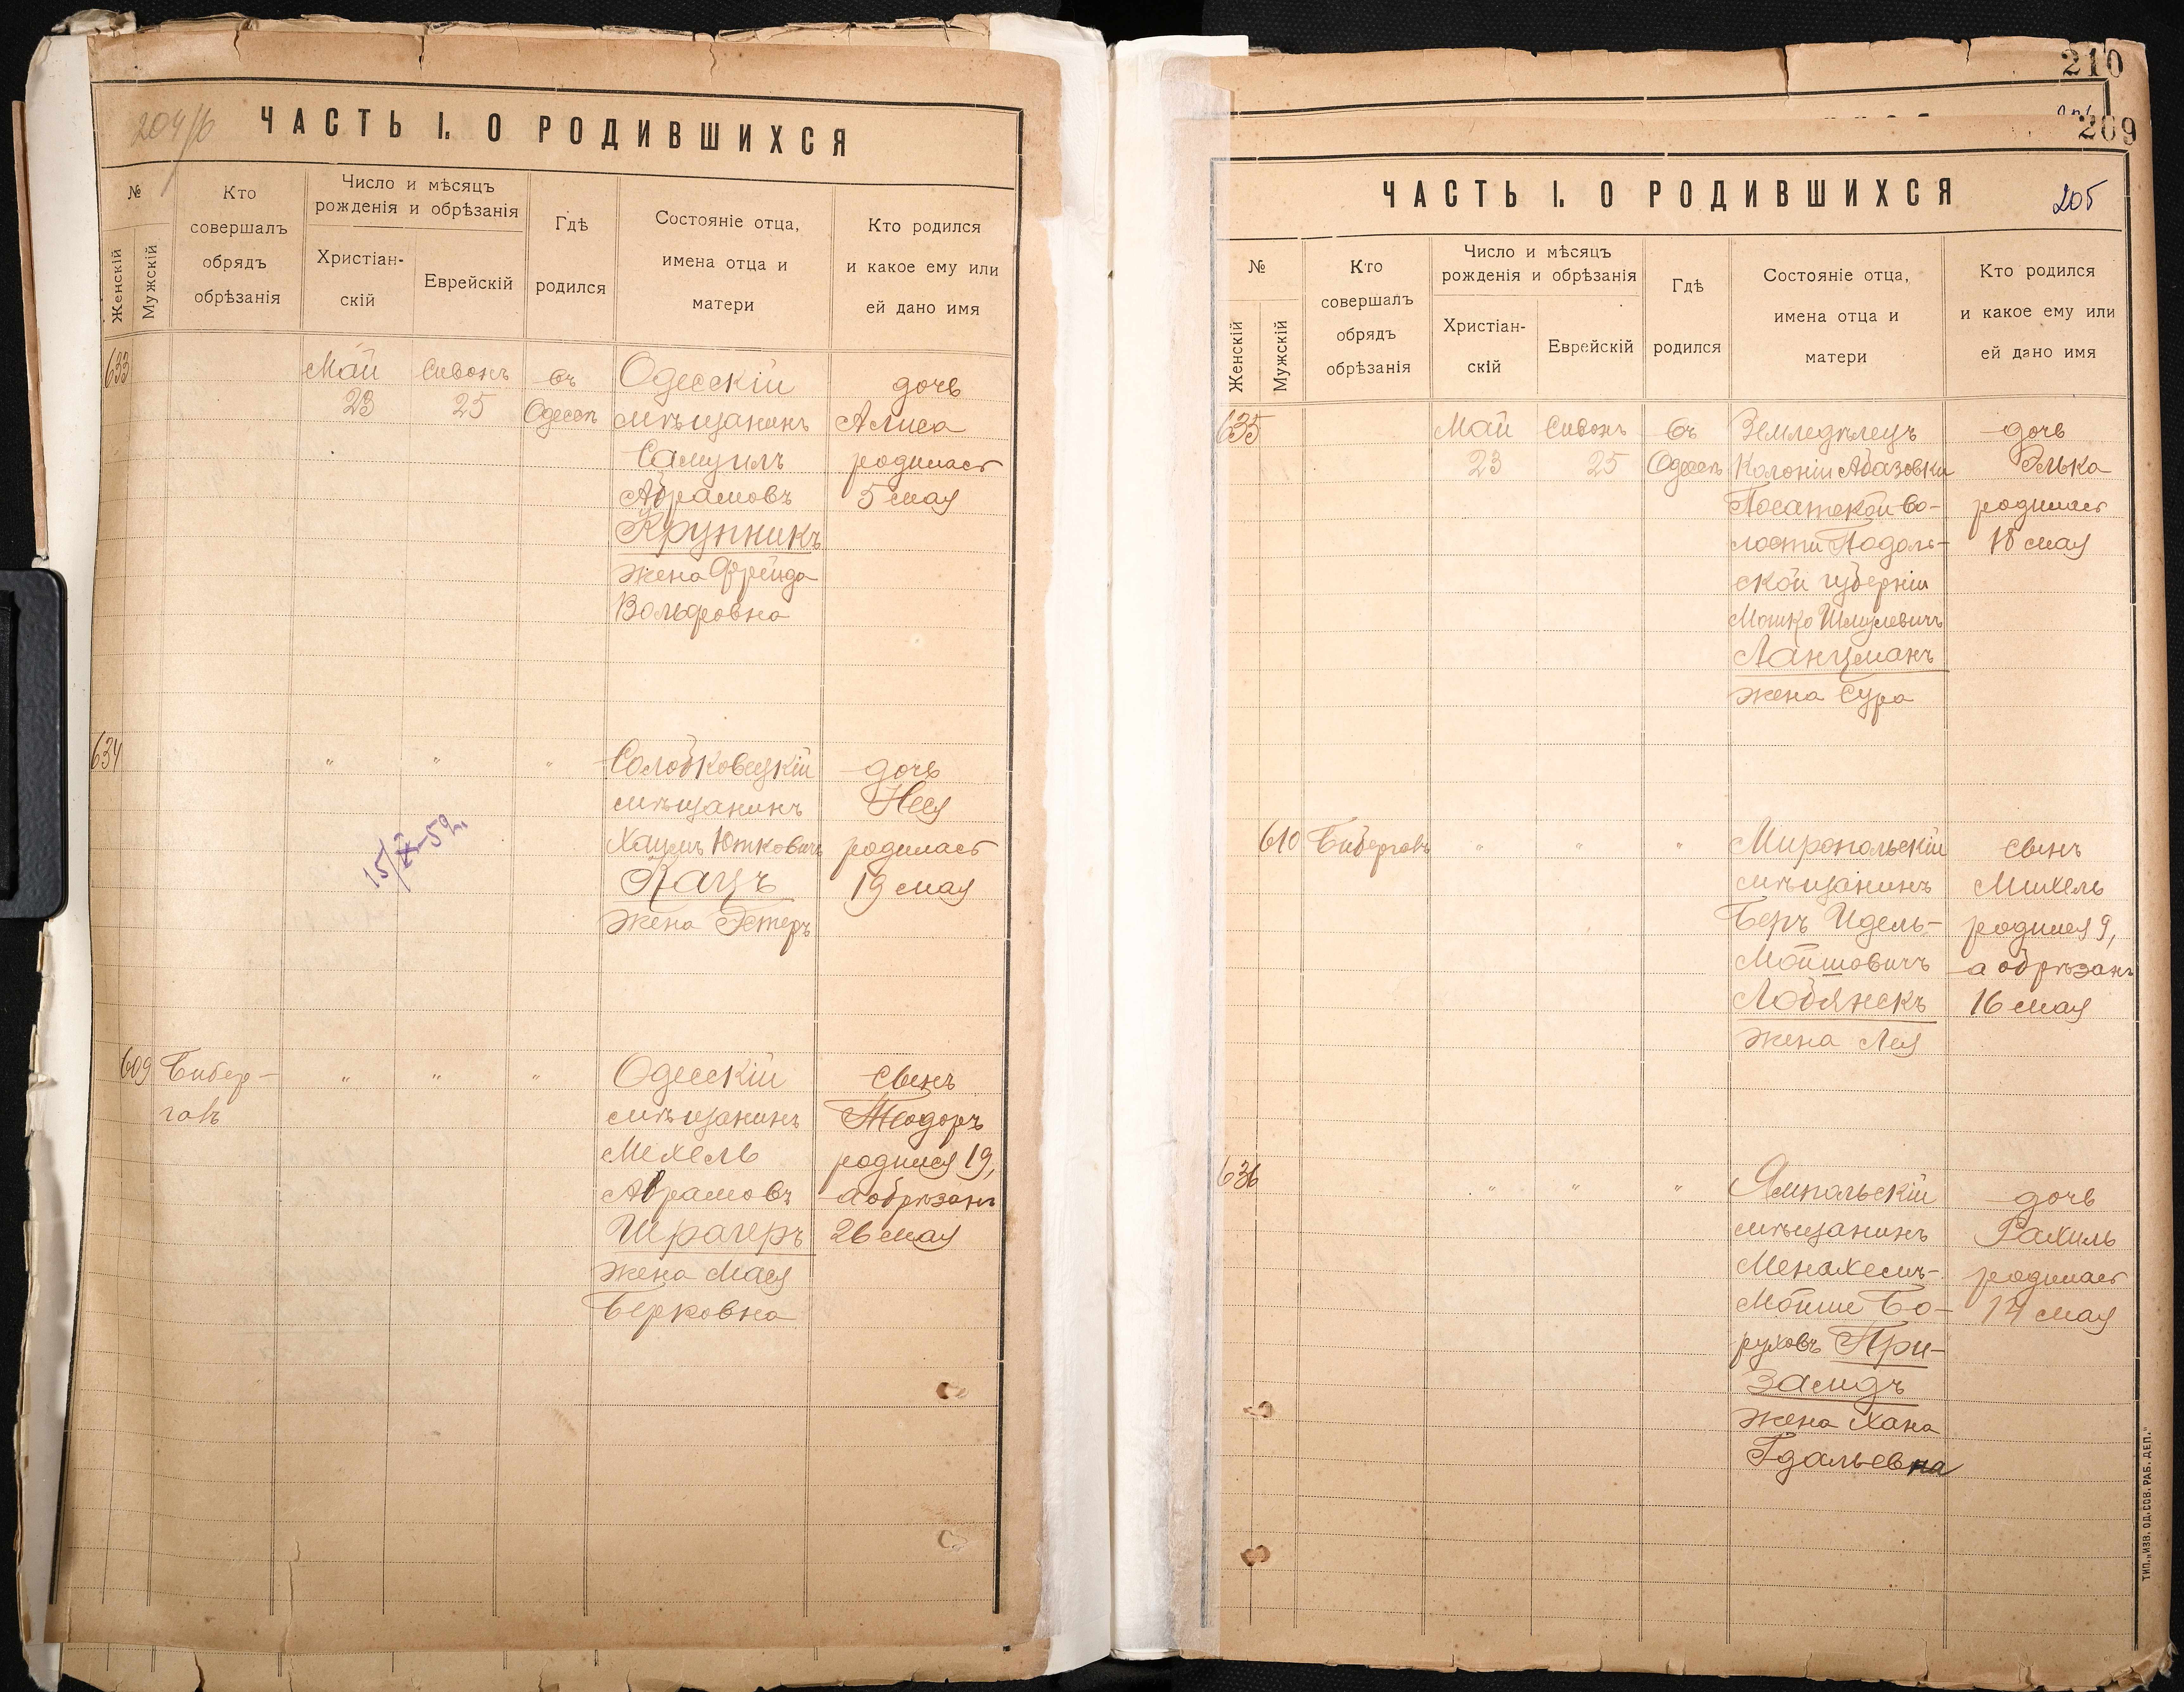 204/б
ЧАСТЬ I. О РОДИВШИХСЯ
№
Женскій
Мужскій
Кто
совершалъ
обрядъ
обрѣзанія
Число и мѣсяцъ
рожденія и обрѣзанія
Христіан-
скій
Еврейскій
Гдѣ
родился
Состояніе отца,
имена отца и
матери
Кто родился
и какое ему или
ей дано имя
633
Май
23
Сивонъ
25
въ
Одессѣ
Одесскій
мѣщанинъ
Самуилъ
Абрамовъ
Крупникъ
жена Фрейда
Вольфовна
дочь
Алиса
родилась
5 мая
634
"
"
"
Солобковецкій
мѣщанинъ
Хаимъ Ютковичъ
Кацъ
жена Эстеръ
дочь
Неся
родилась
19 мая
15/X-59г.
609
Бибер-
галъ
"
"
"
Одесскій
мѣщанинъ
Мехель
Абрамовъ
Шрагеръ
жена Мася
Берковна
сынъ
Теодоръ
родился 19,
а обрѣзанъ
26 мая
210
209
ЧАСТЬ I. О РОДИВШИХСЯ
205
№
Женскій
Мужскій
Кто
совершалъ
обрядъ
обрѣзанія
Число и мѣсяцъ
рожденія и обрѣзанія
Христіан-
скій
Еврейскій
Гдѣ
родился
Состояніе отца,
имена отца и
матери
Кто родился
и какое ему или
ей дано имя
635
Май
23
Сивонъ
25
въ
Одессѣ
Земледѣлецъ
Колоніи Абазовки
Посатской во-
лости Подоль-
ской губерніи
Мошко Шмулевичъ
Ланцманъ
жена Сура
дочь
Элька
родилась
18 мая
610
Бибергалъ
"
"
"
Миропольскій
мѣщанинъ
Беръ Идель-
Мойшовичъ
Лобянскъ
жена Лея
сынъ
Михель
родился 9,
а обрѣзанъ
16 мая
636
"
"
"
Ямпольскій
мѣщанинъ
Менахемъ-
Мойше Бо-
руховъ При-
замдъ
жена Хана
Гдальевна
дочь
Рахиль
родилась
14 мая
ТИП. „ИЗВ. ОД. СОВ. РАБ. ДЕП."